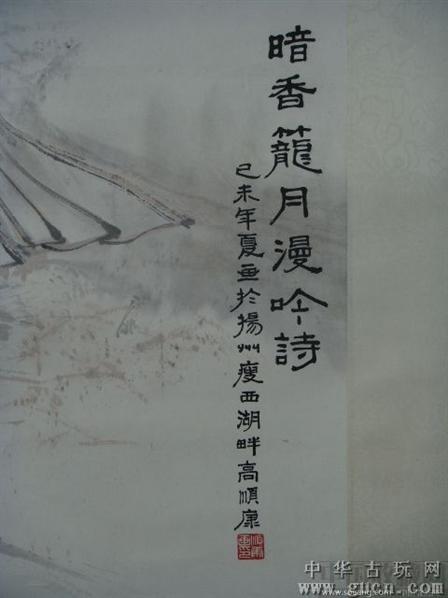 暗香籠月漫吟詩
己未年夏畫於揚州瘦西湖畔高順康
中华古玩网
www.gucn.com